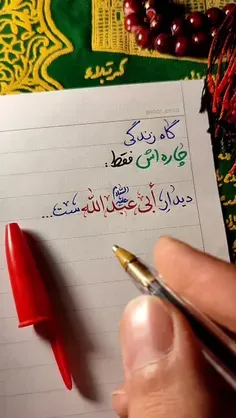 گاه زندگی
چاره‌اش فقط:
دیدارِ أبی عبدالله ست...